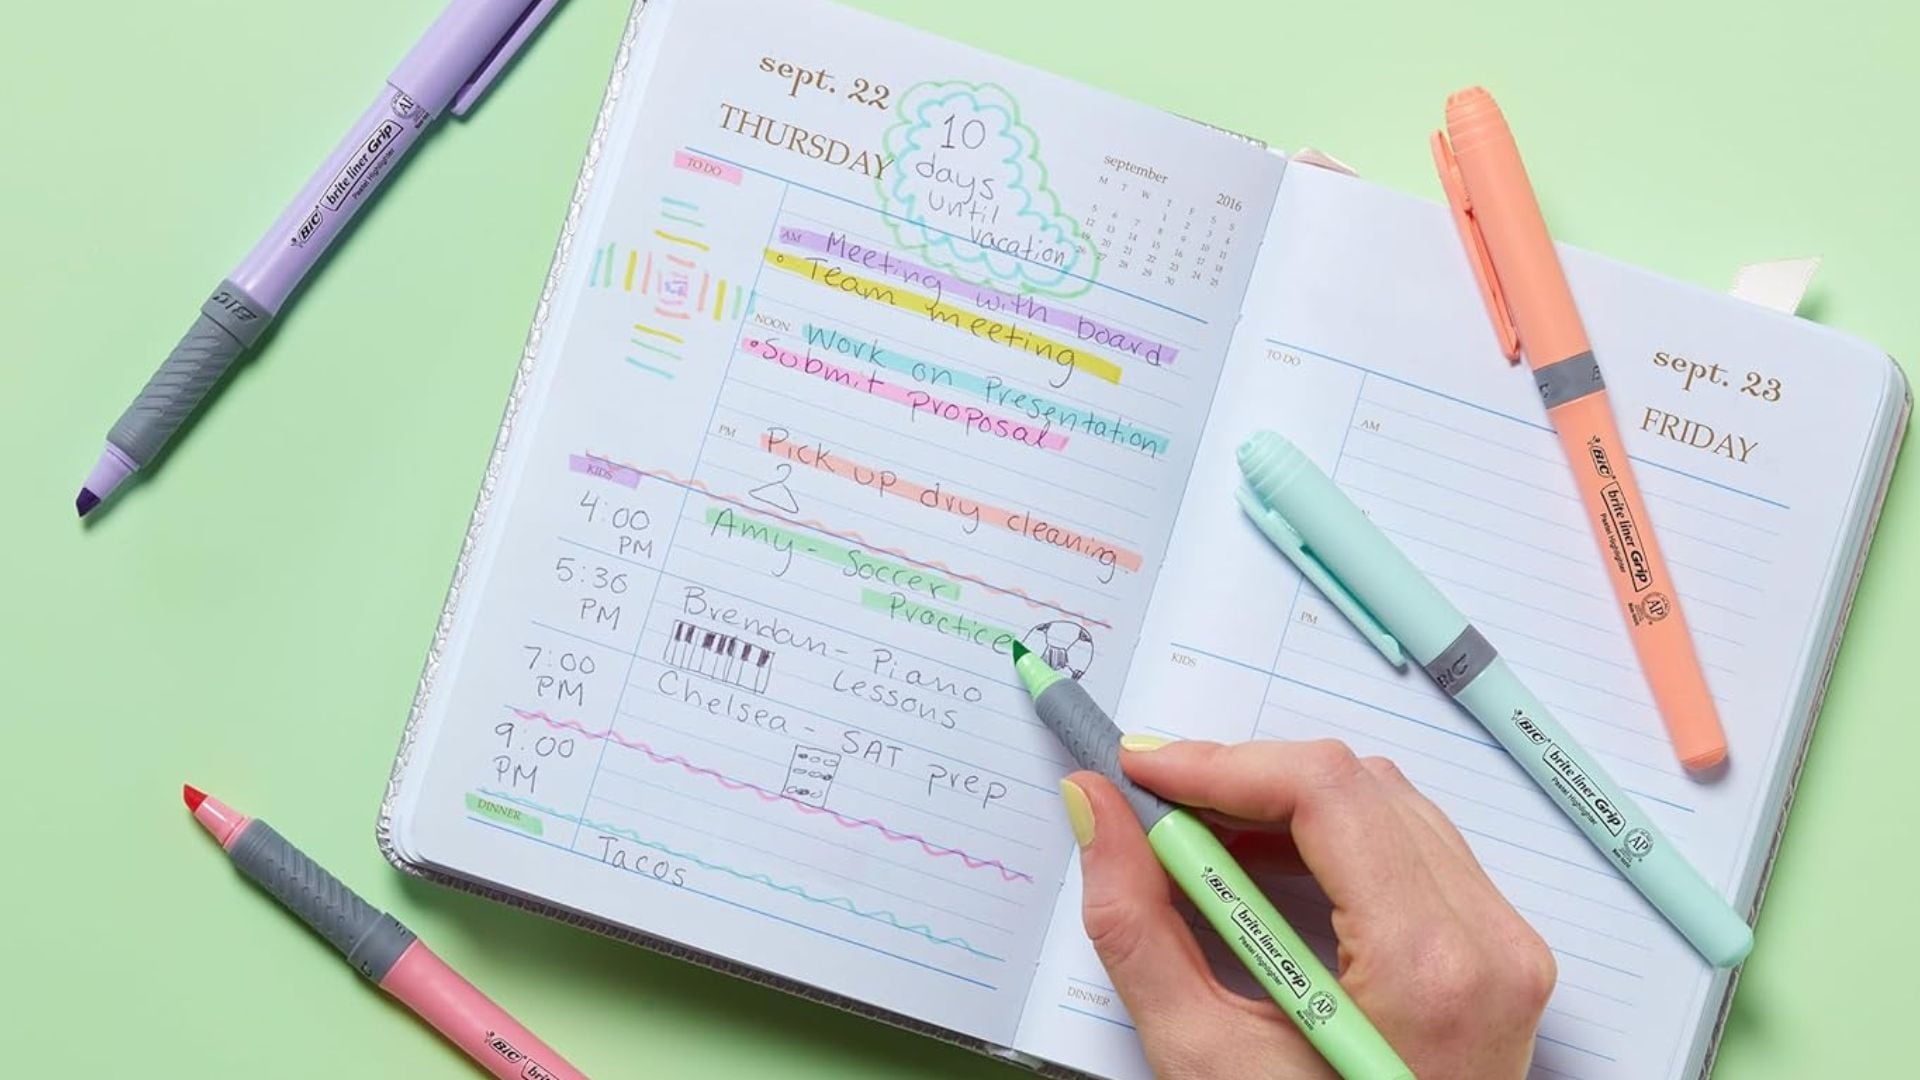 sept. 22
THURSDAY
10
days
until
vacation
september 2016
M T W T F S S
TO DO
AM
Meeting with board
Team meeting
NOON
Work on Presentation
Submit proposal
PM
Pick up dry cleaning.
KIDS
4:00
PM
Amy - Soccer
Practice
5:30
PM
Brendan - Piano
Lessons
7:00
PM
Chelsea - SAT prep
9:00
PM
DINNER
Tacos
sept. 23
FRIDAY
TO DO
AM
PM
KIDS
DINNER
BIC brite liner Grip
Pastel Highlighter
AP
BIC
BIC brite liner Grip
Pastel Highlighter
AP
BIC
BIC brite liner Grip
Pastel Highlighter
AP
BIC brite liner Grip
Pastel Highlighter
AP
BIC
BIC